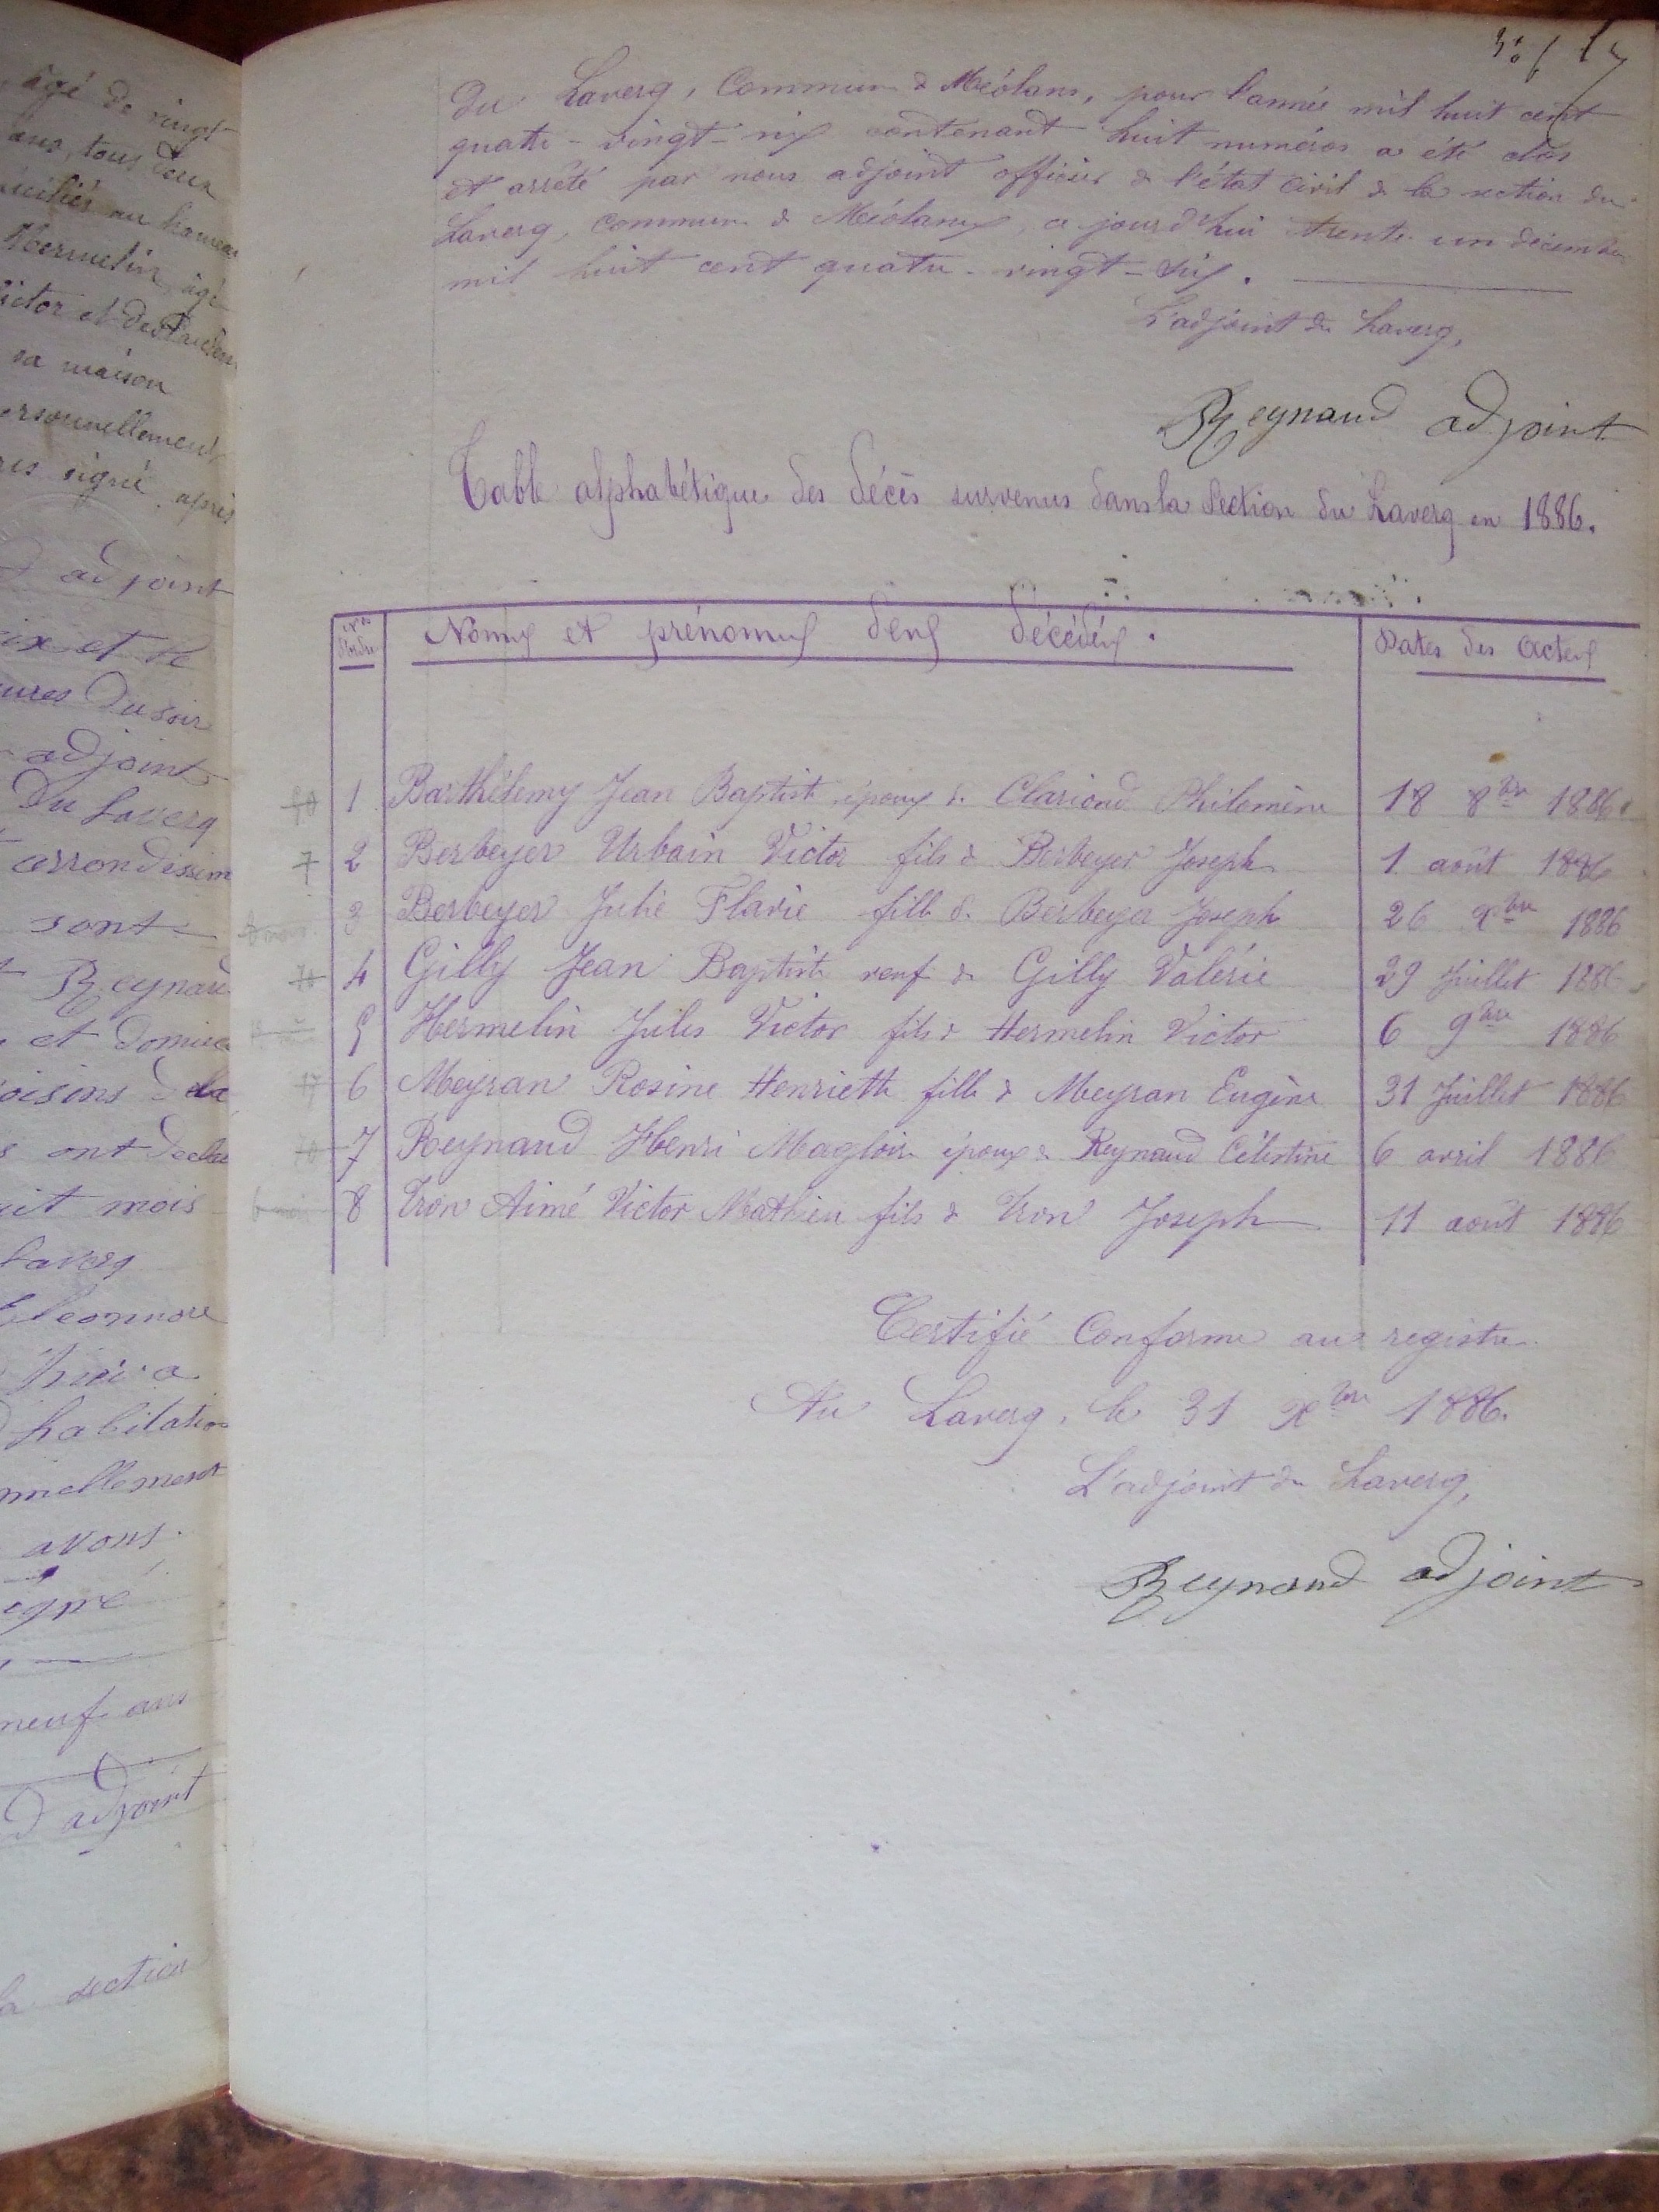 âgé de vingt
ans, tous deux
au hameau
Hermelin, âgé
sa maison
ersonnellement
signé après
adjoint
ix et le
ures du soir
adjoint
du Laverq
arrondissem
sont
Reynaud
et domicil
oisins de la
s ont déclar
uit mois
Laverq
Eleonnore
hier a
habitation
nnellement
avons
igné
neuf ans
d adjoint
la section
du Laverq, Commune de Méolans, pour l'année mil huit cent
quatre-vingt-six contenant huit numéros a été clos
et arrêté par nous adjoint officier de l'état civil de la section du
Laverq, commune de Méolans, ce jourd'hui trente un décembre
mil huit cent quatre-vingt-six.
L'adjoint du Laverq,
Reynaud adjoint
Table alphabétique des décès survenus dans la Section du Laverq en 1886.
Nos d'ordre Noms et prénoms des décédés. Dates des actes
1 Barthélemy Jean Baptiste époux de Clariond Philomène 18 8bre 1886
7 2 Berbeyer Urbain Victor fils de Berbeyer Joseph 1 août 1886
3 Berbeyer Julie Flavie fille de Berbeyer Joseph 26 Xbre 1886
70 4 Gilly Jean Baptiste veuf de Gilly Valérie 29 Juillet 1886
5 Hermelin Jules Victor fils de Hermelin Victor 6 9bre 1886
17 6 Meyran Rosine Henriette fille de Meyran Eugène 31 Juillet 1886
70 7 Reynaud Henri Magloire époux de Reynaud Célestine 6 avril 1886
8 Tron Aimé Victor Mathieu fils de Tron Joseph 11 août 1886
Certifié Conforme au registre
Au Laverq, le 31 Xbre 1886.
L'adjoint du Laverq,
Reynaud adjoint